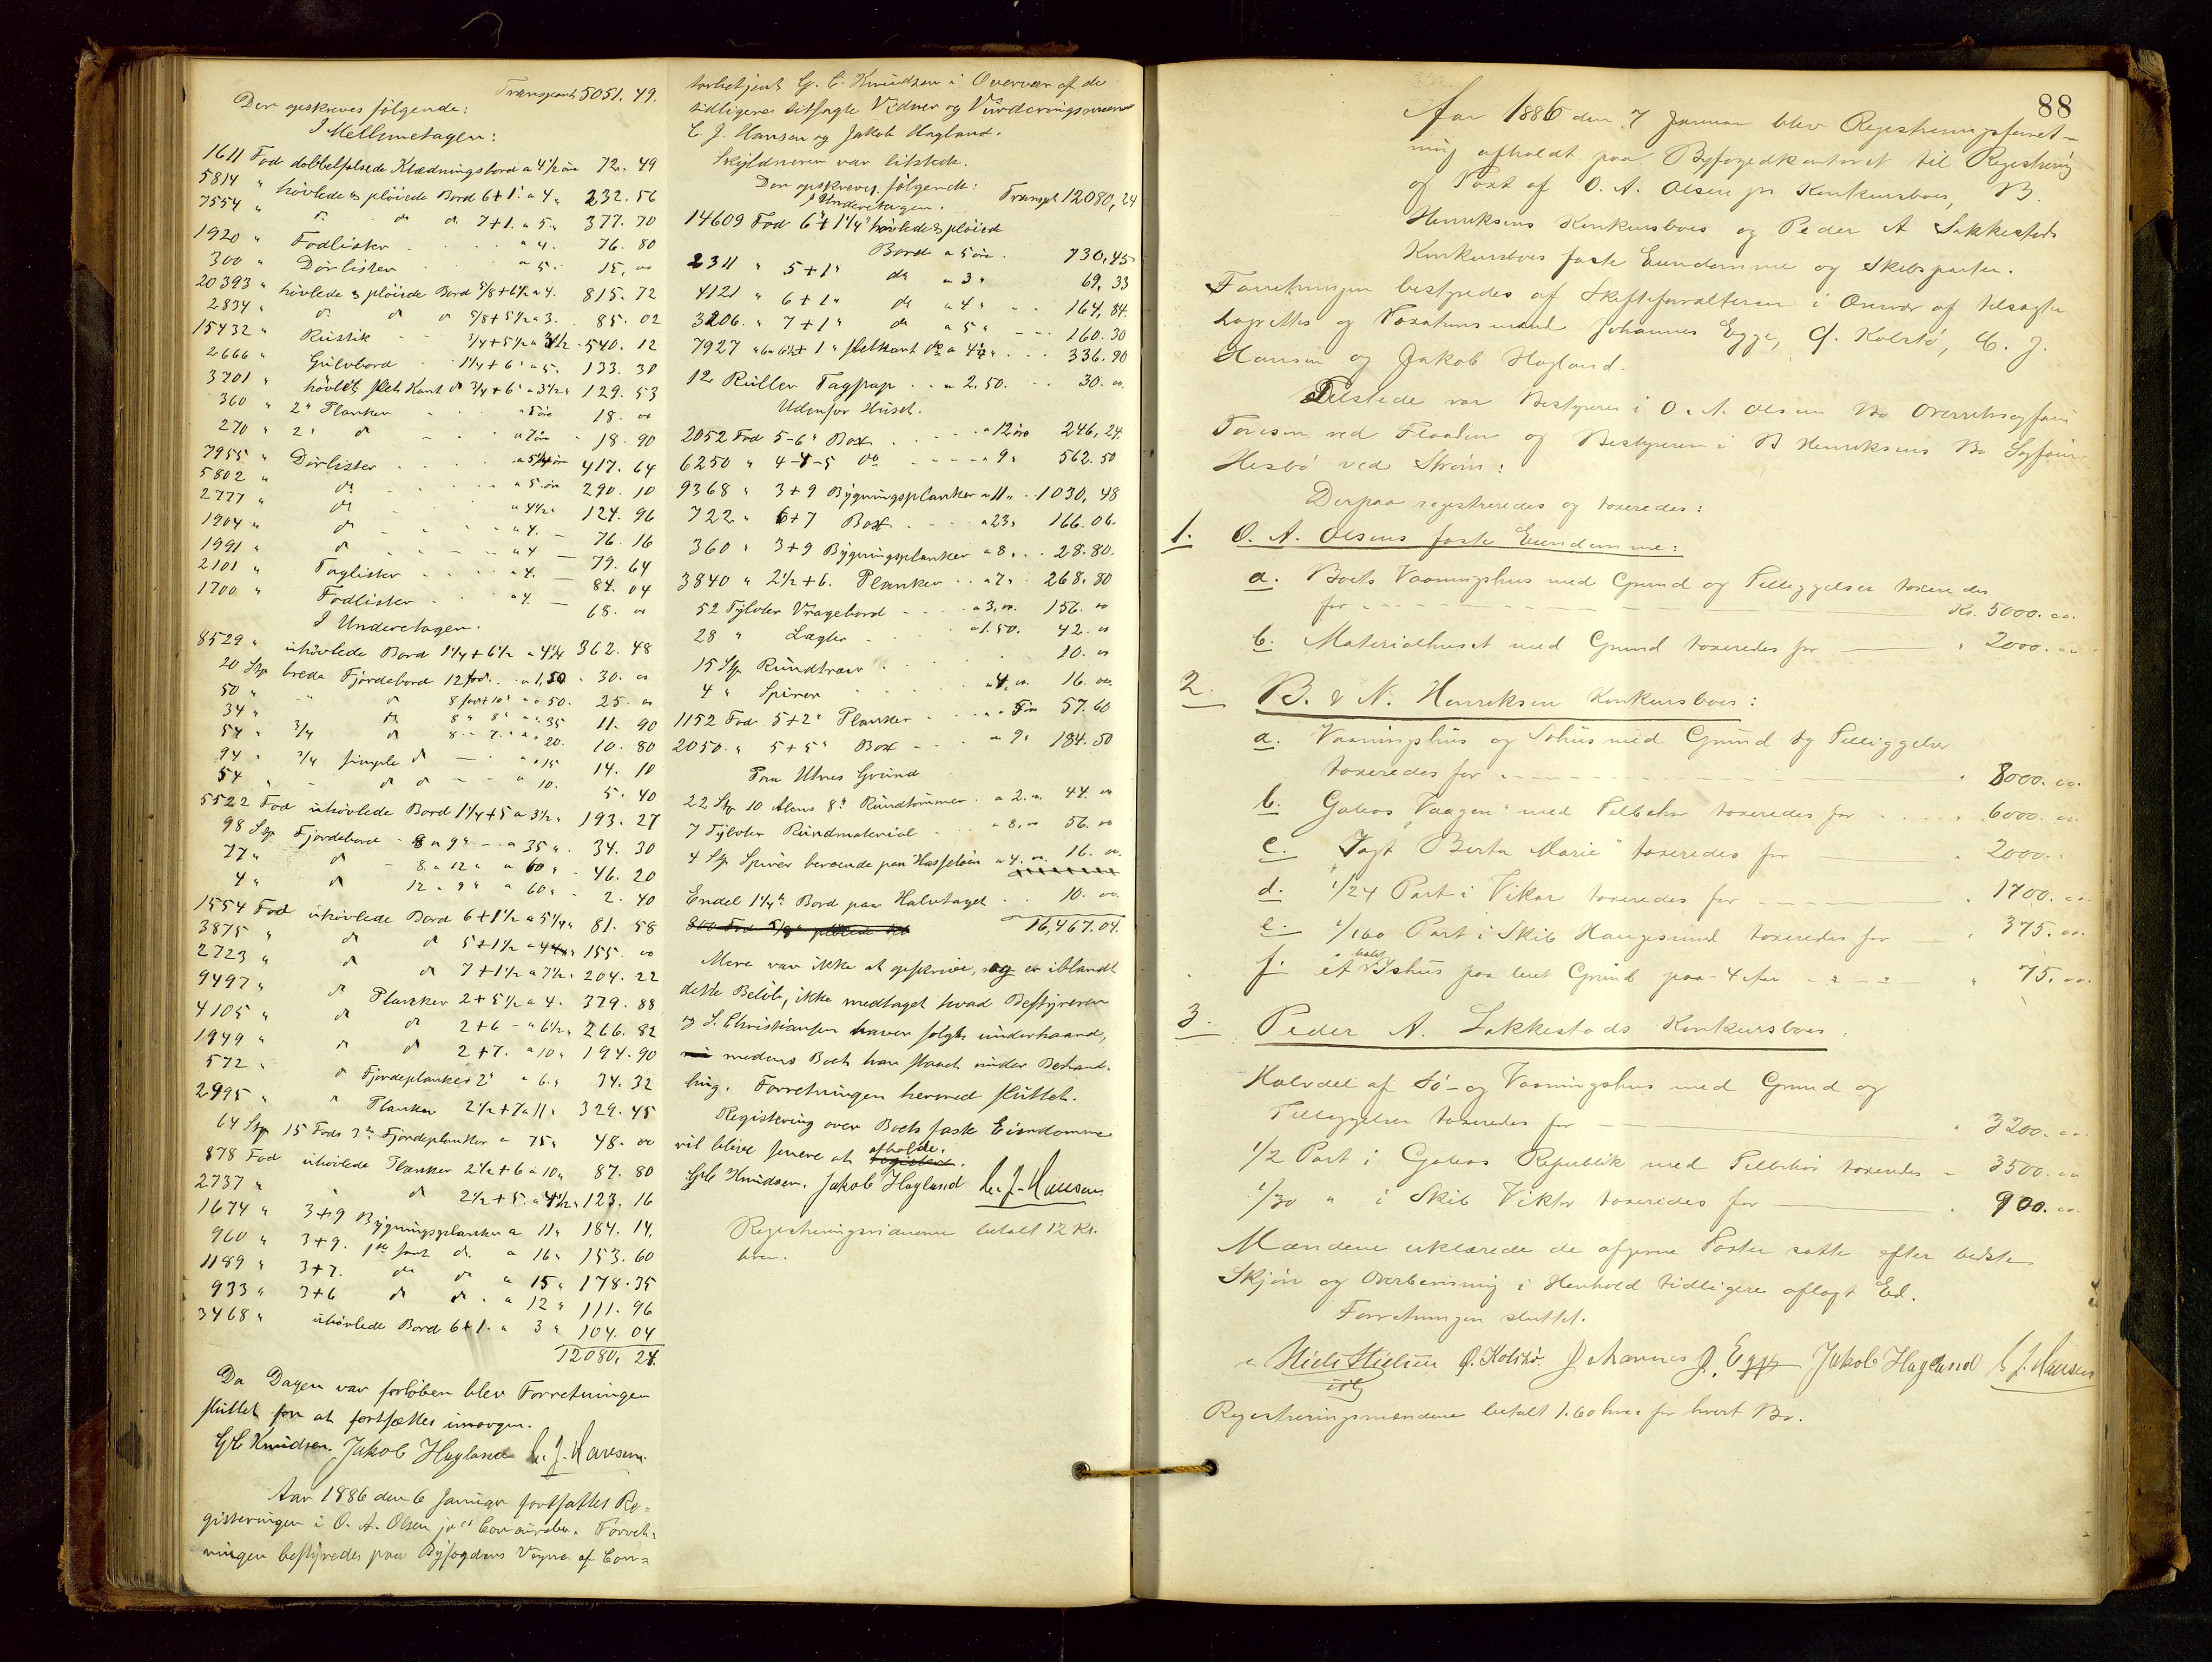 Transport 5051. 49.
Der opskreves følgende:
I Mellemetagen:
1611 Fod dobbelfalsede Klædningsbord a 4 1/2 öre 72. 49
5814 " høvlede & pløiede Bord 6+1. a 4 " 232. 56
7554 " do do do 7+1. a 5 " 377. 70
1920 " Fodlister a 4. 76. 80
300 " Dørlister a 5. 15. 00
20393 " høvlede & pløiede Bord 5/8+6 1/2 a 4. 815. 72
2834 " do do do 5/8+5 1/2 a 3. 85. 02
15432 " Rustik 3/4+5 1/2 a 3 1/2 540. 12
2666 " Gulvbord 1 1/4+6 " a 5. 133. 30
3701 " høvlet slet Kant do 3/4+6 " a 3 1/2 " 129. 53
360 " 2" Planker a 5 öre 18. 00
270 " 2" do a 7 öre 18. 90
7955 " Dørlister a 5 1/4 öre 417. 64
5802 " do a 5 öre 290. 10
2777 " do a 4 1/2 " 124. 96
1904 " do a 4. 76. 16
1991 " do a 4 79. 64
2101 " Taglister a 4. 84. 04
1700 " Fodlister a 4. 68. 00
I Underetagen.
8529 " uhøvlede Bord 1 1/4+6 1/2 a 4 1/4 362. 48
20 Stp brede Fjordebord 12 fod. a 1,50 30. 00
50 " " do 8 fod+10" a 50. 25. 00
34 " do 8 " 8" a 35 11. 90
54 " 3/4 do 8 - 7. " a 20. 10. 80
94 " 3/4 simple do a 15 14. 10
54 " - do do a 10. 5. 40
5522 Fod uhøvlede Bord 1 1/4+5 a 3 1/2 " 193. 27
98 Stp Fjordebord - 8 a 9" - a 35 " 34. 30
77 " do - 8 a 12 " a 60 " 46. 20
4 " do 12 - 9 " a 60 " 2. 40
1554 Fod uhøvlede Bord 6+1 1/2 a 5 1/4 " 81. 58
3875 " do do 5+1 1/2 a 4 " 155. 00
2723 " do do 7+1 1/2 a 7 1/2 " 204. 22
9497 " do Planker 2+5 1/2 a 4. 379. 88
4105 " do do 2+6 - a 6 1/2 " 266. 82
1949 " do do 2+7. a 10 " 194. 90
572 " do Fjordeplanker 2" a 6 " 34. 32
2995 " " Planker 2 1/2+7 a 11 " 329. 45
64 Stp 15 Fods 3" Fjordeplanker a 75 " 48. 00
878 Fod uhøvlede Planker 2 1/2+6 a 10 " 87. 80
2737 " do 2 1/2+5. a 4 1/2 " 123. 16
1674 " 3+9 Bygningsplanker a 11 " 184. 14.
960 " 3+9. 1ste sort do. a 16 " 153. 60
1189 " 3+7. do do a 15 " 178. 35
933 " 3+6 do do. a 12 " 111. 96
3468 " uhøvlede Bord 6+1. a 3 " 104. 04
12080, 24.
Da Dagen var forløben blev Forretningen
sluttet for at fortsættes imorgen.
G C Knudsen. Jakob Hagland C. J. Hansen.
Aar 1886 den 6 Januar fortsattes Re-
gistreringen i O. A. Olsen jr's Concursbo. Forret-
ningen bestyredes paa Byfogdens Vegne af Con-
torbetjent G. C. Knudsen i Overvær af de
tidligere tilsagte Vidner og Vurderingsmænd
C. J. Hansen og Jakob Hagland.
Skyldneren var tilstede.
Der opskreves følgende:
I Underetagen. Transpt 12080, 24
14609 Fod 6"+1 1/4" høvlede & pløiede
Bord a 5 öre. 730,45
2311 " 5+1" do a 3 " 69, 33
4121 " 6+1" do a 4 " 164, 84.
3206. " 7+1" do a 5 " 160. 30
7927 " 6 a 6 1/2+1" sletkant do a 4 1/4 " 336. 90
12 Ruller Tagpap a 2. 50. 30. 00
Udenfor Huset.
2052 Fod 5-6" Box a 12 öre 246, 24.
6250 " 4-4-5 do a 9 " 562. 50
9368 " 3+9 Bygningsplanker a 11 " 1030, 48
722 " 6+7 Box a 23 " 166. 06.
360 " 3+9 Bygningsplanker a 8 " 28. 80.
3840 " 2 1/2+6. Planker a 7 " 268. 80
52 Tylvter Vragebord a 3, 00. 156. 00
28 " Lægter a 1. 50. 42. 00
15 Stp Rundtræer 10. 00
4 " Spirer a 4. 00. 16. 00
1152 Fod 5+2" Planker a 5 öre 57. 60
2050. " 5+5" Box a 9 " 184. 50
Paa Utnes Grund
22 Stp 10 Alens 8" Rundtømmer a 2. 00. 44. 00
7 Tylvter Rundmaterial a 8, 00 56. 00
4 Stp Spirer beroende paa Hasseløen a 4. 00. 16. 00
Endel 1 1/4" Bord paa Halvtaget 10. 00
16,467.04.
Mere var ikke at opskrive, og er iblandt
dette Beløb, ikke medtaget hvad Bestyreren
og S. Christiansen haver solgt underhaand,
medens Boet har staaet under Behand-
ling. Forretningen hermed sluttet.
Registering over Boets faste Eiendomme
vil blive senere at afholde.
G C Knudsen. Jakob Hagland C. J. Hansen
Registreringsvidnerne betalt 12 Kr.
hver.
88
Aar 1886 den 7 Januar blev Registreringsforret-
ning afholdt paa Byfogedkontoret til Registrering
og Taxt af O. A. Olsen jrs Konkursboes, B.
Henriksens Konkursboes og Peder A Søkkestads
Konkursboes faste Eiendomme og Skibsparter.
Forretningen bestyredes af Skifteforvalteren i Overvær af tilsagte
Lagrettes og Taxationsmænd Johannes Egge, O. Kolstø, C. J.
Hansen og Jakob Hagland.
Tilstede var Bestyreren i O. A. Olsens Bo Overretssagfører
Foresen ved Flaaden og Bestyreren i B Henriksens Bo Sagfører
Hesbø ved Strøm:
Derpaa registreredes og taxeredes:
1. O. A. Olsens faste Eiendomme:
a. Boets Vaaningshus med Grund og Tilliggelser taxeredes
for Kr. 5000. 00.
b. Materialhuset med Grund taxeredes for " 2000. 00
2. B. & N. Henriksen Konkursboes:
a. Vaaningshus og Søhus med Grund og Tilliggelser
taxeredes for " 8000. 00.
b. Galeas "Vaagen" med Tilbehør taxeredes for " 6000. 00.
c. Jagt "Berta Marie" taxeredes for " 2000. "
d. 1/24 Part i Vikar taxeredes for " 1700. 00.
e. 1/160 Part i Skib Haugesund taxeredes for " 375. 00.
f. et halvt Ishus paa leiet Grund paa 4 Aar " 75. 00.
3. Peder A. Søkkestads Konkursboes.
Halvdel af Sø- og Vaaningshus med Grund og
Tilliggelser taxeredes for " 3200. 00
1/2 Part i Galeas Republik med Tilbehør taxeredes " 3500. 00
1/30 " i Skib Viktor taxeredes for " 900. 00.
Mændene erklærede de afgivne Taxter satte efter bedste
Skjøn og Overbevisning i Henhold tidligere aflagt Ed.
Forretningen sluttet.
Niels Nielsen O. Kolstø. Johannes J. Egge Jakob Hagland C J. Hansen
Registreringsmændene betalt 1.60 hver for hvert Bo.